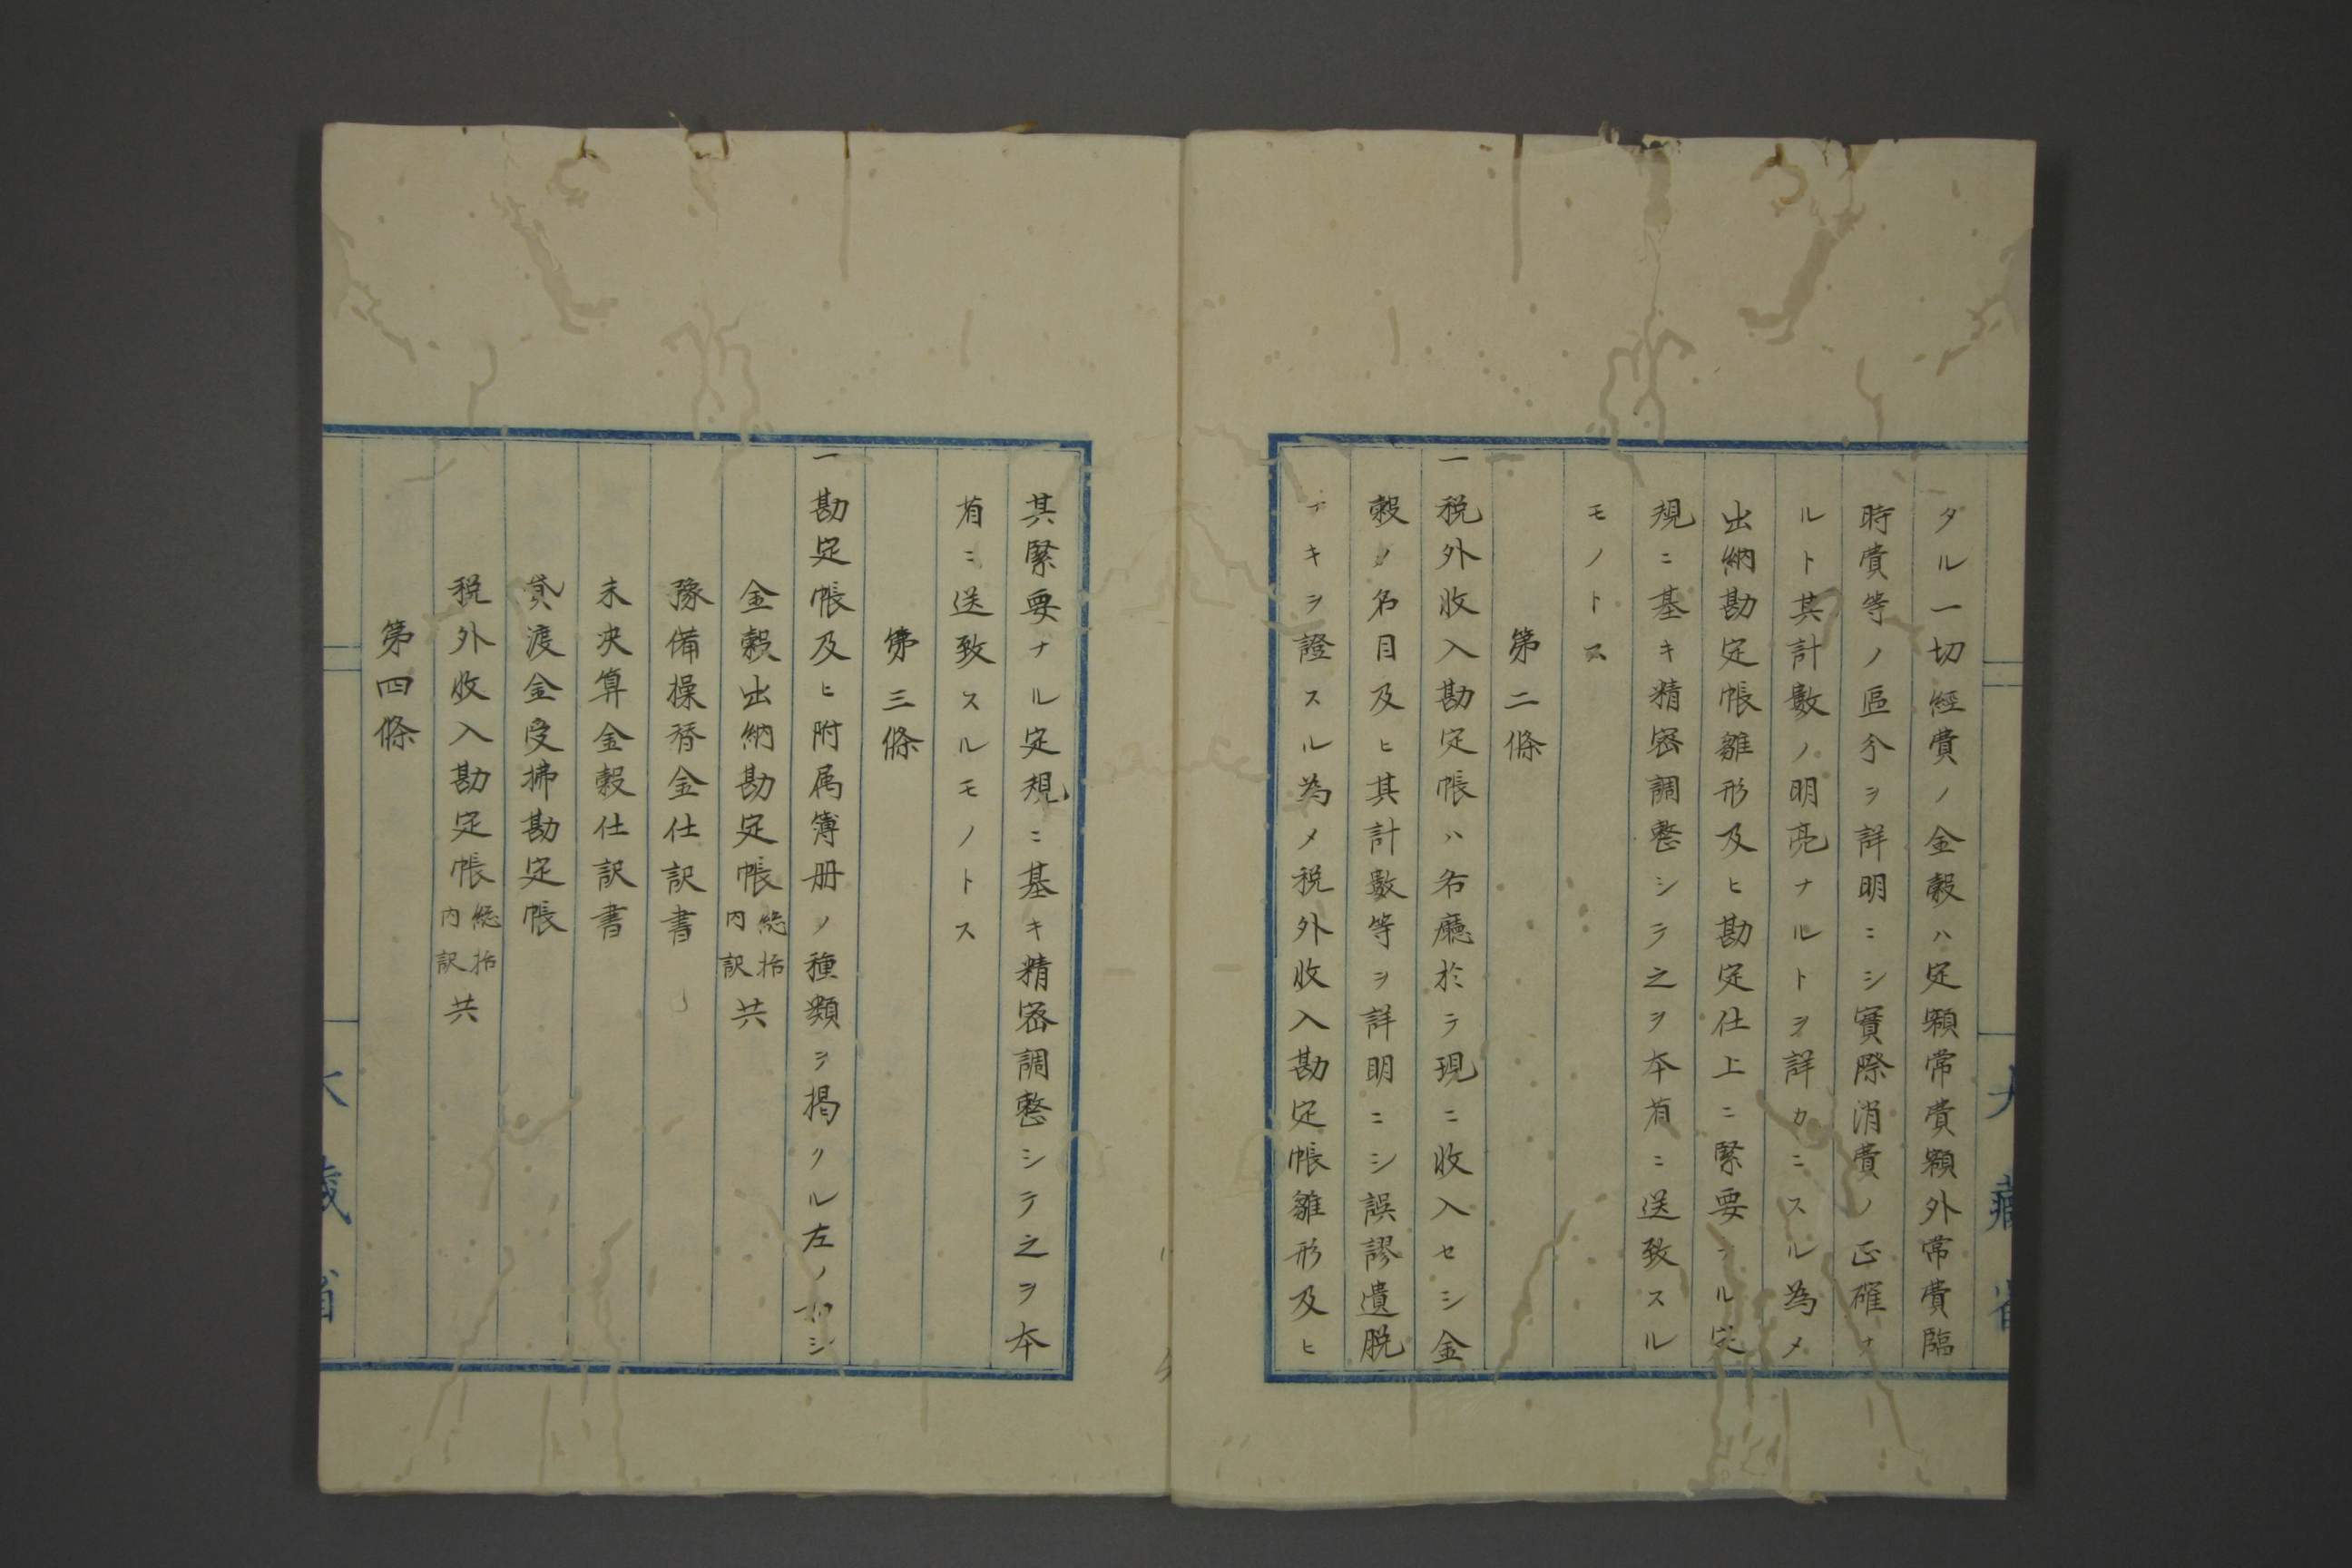 タル一切經費ノ金穀ハ定額常費額外常費臨
時費等ノ區分ヲ詳明ニシ實際消費ノ正確ナ
ルト其計數ノ明亮ナルトヲ詳カニスル為メ
出納勘定帳雛形及ヒ勘定仕上ニ緊要ナル定
規ニ基キ精密調整シテ之ヲ本省ニ送致スル
モノトス
第二條
一税外收入勘定帳ハ各廳於テ現ニ收入セシ金
穀ノ名目及ヒ其計數等ヲ詳明ニシ誤謬遺脱
ナキヲ證スル為メ税外收入勘定帳雛形及ヒ
其緊要ナル定規ニ基キ精密調整シテ之ヲ本
省ニ送致スルモノトス
第三條
一勘定帳及ヒ附属簿册ノ種類ヲ掲クル左ノ如シ
金穀出納勘定帳総括内訳共
豫備操替金仕訳書
未決算金穀仕訳書
貸渡金受拂勘定帳
税外收入勘定帳総括内訳共
第四條
大藏省